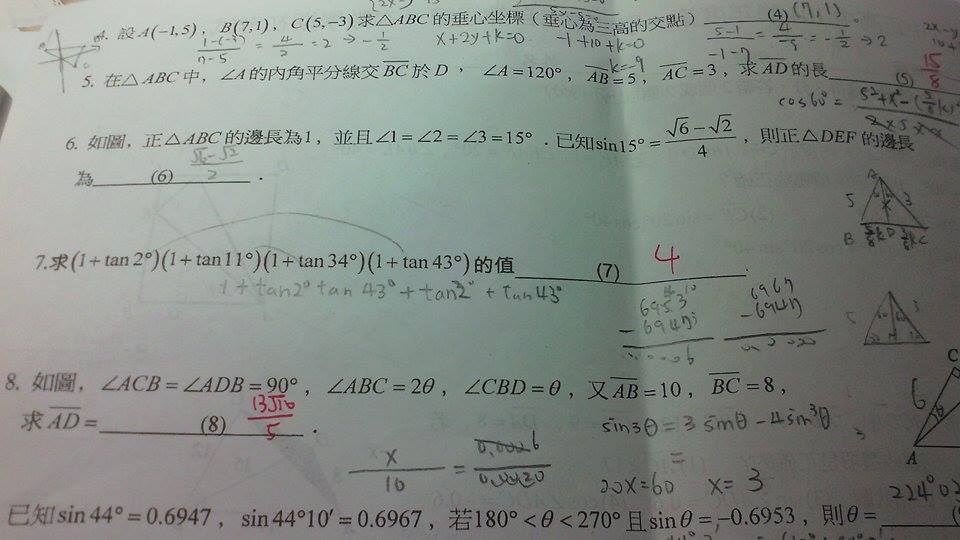 4. 設A(-1,5), B(7,1), C(5,-3)求△ABC的垂心坐標(垂心為三高的交點) (4) (7,1)
1-(-3) = 4/2 = 2 → -1/2 x+2y+k=0 -1+10+k=0 5-1/-1-7 = -1/2 → 2
k=-9
5. 在△ABC中,∠A的內角平分線交BC於D,∠A=120°,AB=5,AC=3,求AD的長 (5) 15/8
cos60°=
6. 如圖,正△ABC的邊長為1,並且∠1=∠2=∠3=15°.已知sin15°=(√6-√2)/4,則正△DEF的邊長
為 (6) (√6-√2)/2 .
A
5 3
B D C
7.求(1+tan2°)(1+tan11°)(1+tan34°)(1+tan43°)的值 (7) 4 .
1+tan2°tan43°+tan2°+tan43°
5 3
8. 如圖,∠ACB=∠ADB=90°,∠ABC=2θ,∠CBD=θ,又AB=10,BC=8,
求AD= (8) 13√10/5 .
sin3θ=3sinθ-4sin³θ
=
x/10 =
20x=60 x=3
C
6
θ
A
已知sin44°=0.6947,sin44°10′=0.6967,若180°<θ<270°且sinθ=-0.6953,則θ=